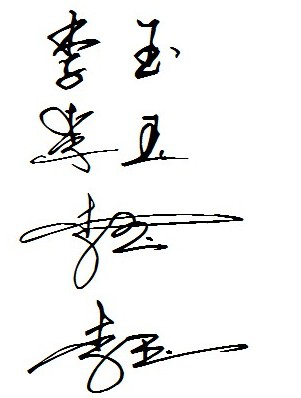 李玉
李玉
李玉
李玉